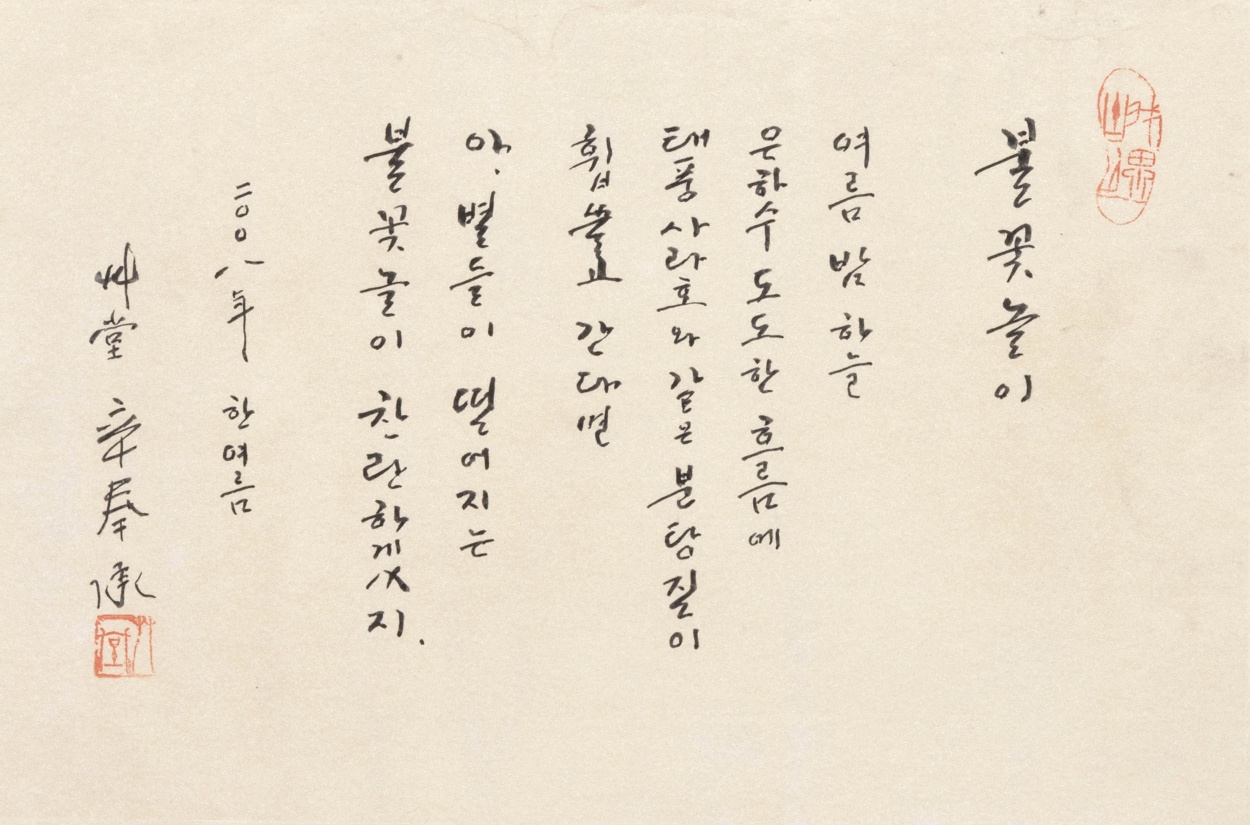 불꽃놀이
여름 밤 하늘
은하수 도도한 흐름에
태풍 사라호와 같은 분탕질이
휩쓸고 간다면
아, 별들이 떨어지는
불꽃놀이 찬란하겠지.
二〇〇八年 한여름
艸堂 辛奉承
艸堂